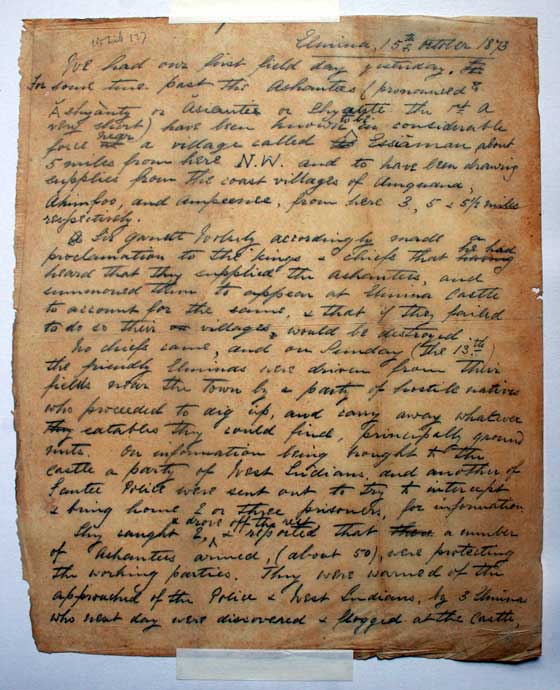 Elmina, 15th October 1873
We had our first field day yesterday.
For some time past the Ashantees (pronounced
Ashyanty or Asiantie or the 1st A
very short) have been known to be in considerable
force near a village called Essaman about
5 miles from here N.W. and to have been drawing
supplies from the coast villages of Amquana,
Akimfoo, and Ampeenee, from here 3, 5 & 5½ miles
respectively.
Sir Garnet Wolsely accordingly made a
proclamation to the Kings & Chiefs that he had
heard that they supplied the Ashantees, and
summoned them to appear at Elmina Castle
to account for the same, & that if they failed
to do so their villages would be destroyed
No chiefs came, and on Sunday (the 13th)
the friendly Elminas were driven from their
fields near the town by a party of hostile natives
who proceeded to dig up, and carry away whatever
eatables they could find, principally ground
nuts. On information being brought to the
castle a party of West Indians, and another of
Fantee Police were sent out to try to intercept
& bring home 2 or three prisoners, for information
They caught 2, & drove off the rest, & reported that a number
of Ashantees armed, (about 50), were protecting
the working parties. They were warned of the
approached of the Police & West Indians, by 3 Elminas
who next day were discovered & flogged at the Castle,